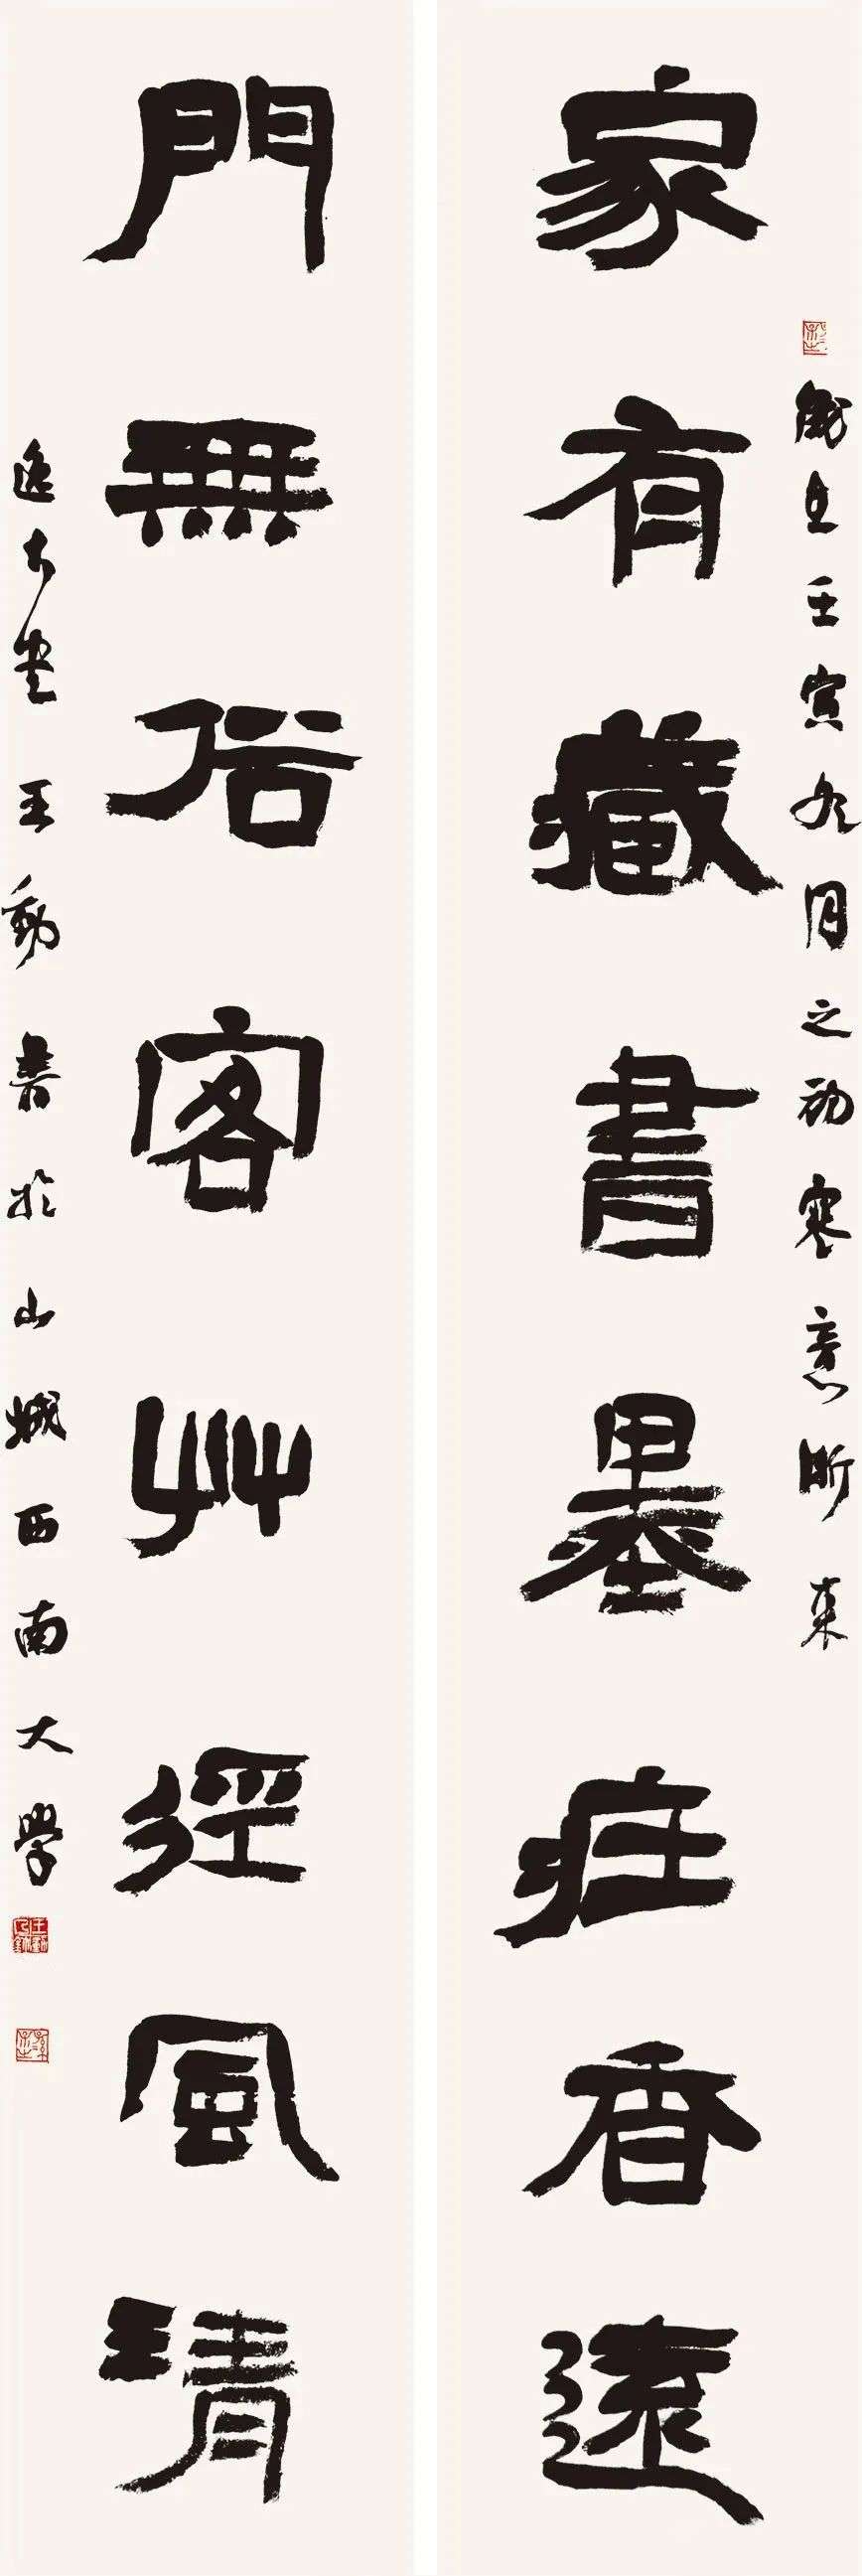 家有藏書墨莊香遠
門無俗客艸徑風清
歲在壬寅九月之初寒意漸來
王動書於山城西南大學